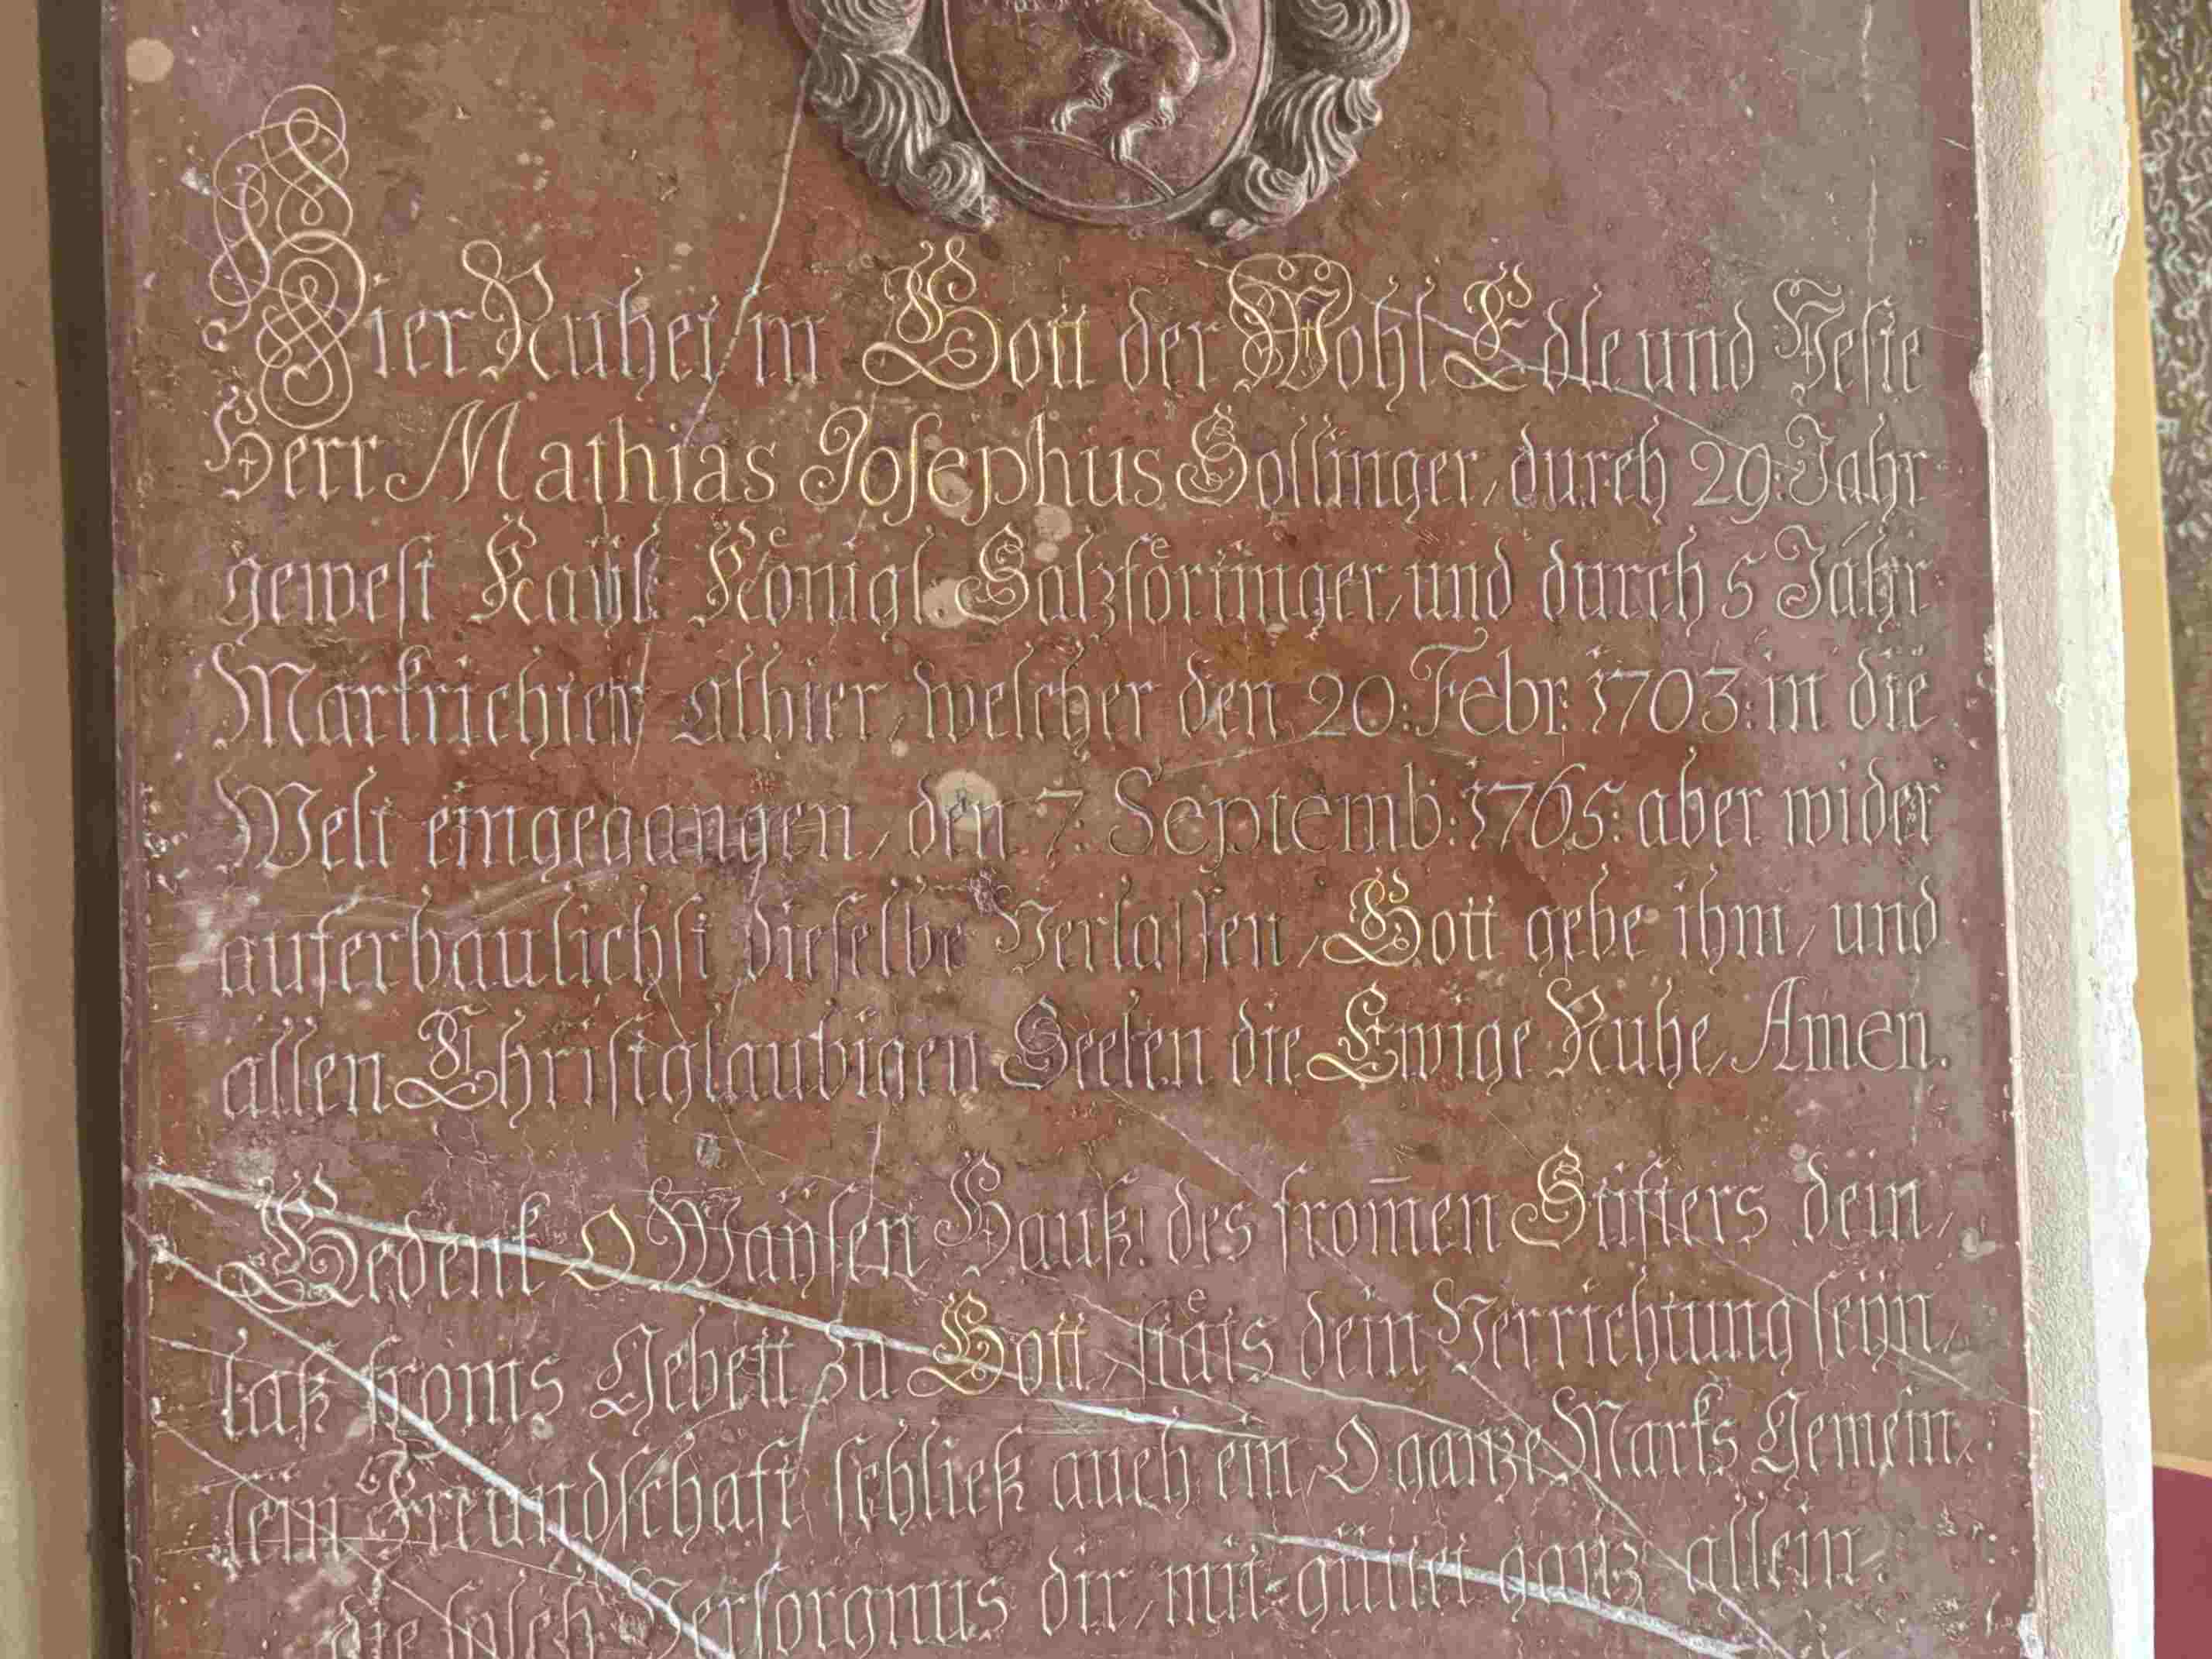 Hier Ruhet in Gott der Wohl Edle und Veste
Herr Mathias Josephus Sollinger, durch 29: Jahr
gewest Kaÿl: Königl: Salzförttinger, und durch 5 Jahr
Markrichter alhier, welcher den 20: Febr: 1703: in die
Welt eingegangen, den 7: Septemb: 1765: aber wider
auferbaulichst dieselbe Verlassen, Gott gebe ihm, und
allen Christglaubigen Seelen die Ewige Ruhe, Amen.
Gedenk O Waÿsen Hauß! des from̄en Stifters dein,
laß froms Gebett zu Gott, stäts dein Verrichtung seÿn,
sein Freundschaft schließ auch ein, O ganze Markts Gemein,
die solch Versorgnus dir, mit-güttet ganz allein.